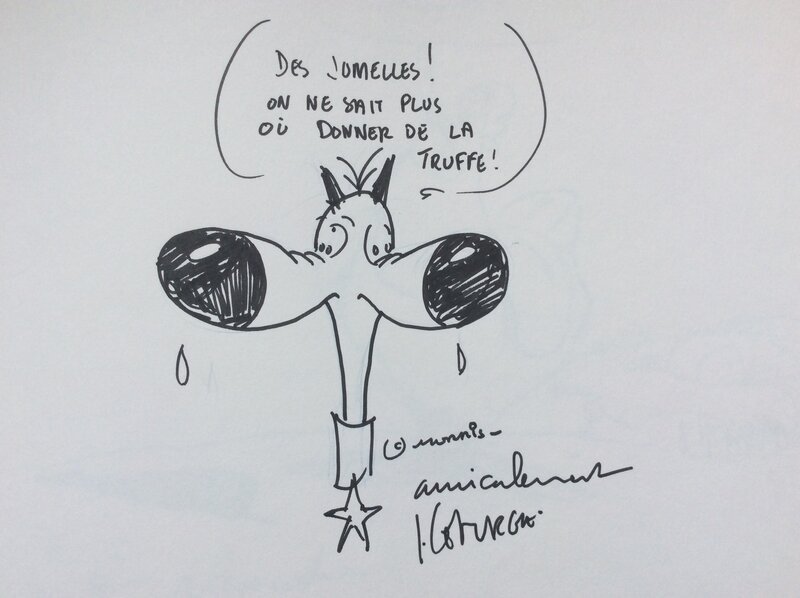 DES JUMELLES !
ON NE SAIT PLUS
OÙ DONNER DE LA
TRUFFE !
© MORRIS –
amicalement